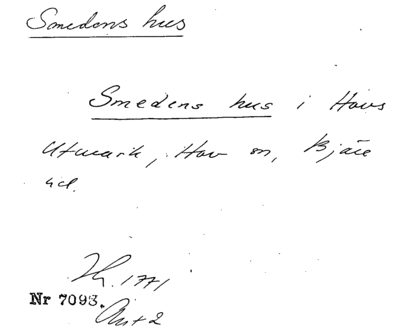 Smedens hus
Smedens hus i Hovs
Utmark, Hov sn, Bjäre
hd.
1771
Nr 7093.